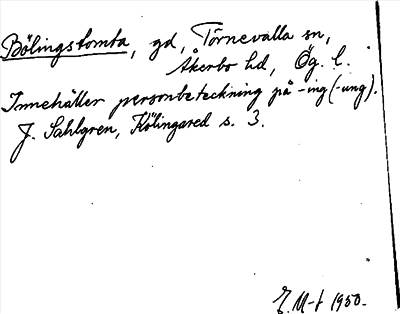 Bölingstomta, gd, Törnevalla sn,
Åkerbo hd, Ög. l.
Innehåller personbeteckning på -ing (-ung).
J. Sahlgren, Kölingared s. 3.
E. M-t 1950.